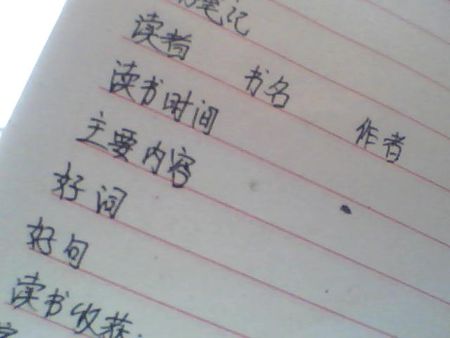 笔记
读者 书名 作者
读书时间
主要内容
好词
好句
读书收获: